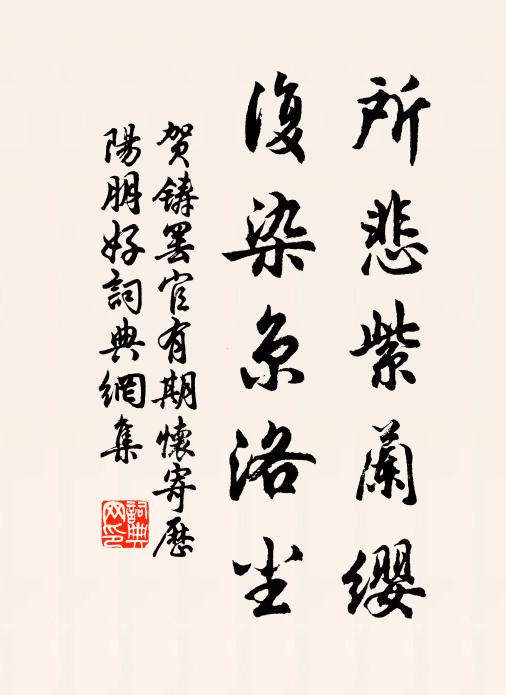 所悲紫蘭纓
復染京洛尘
贺鑄罢官有期懷寄歷
陽朋好詞典網集
詞典网印